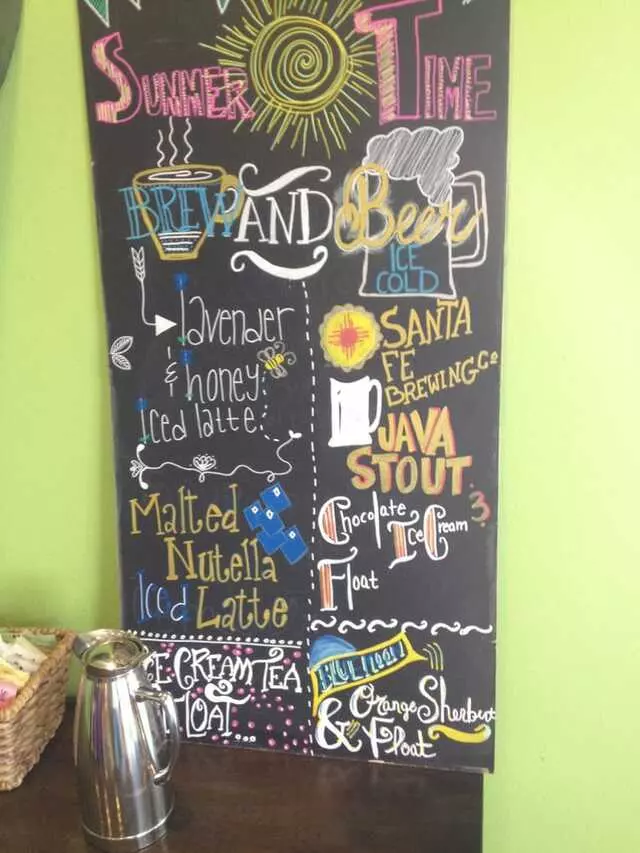 SUMMER TIME
BREW AND Beer
ICE
COLD
lavender
& honey
Iced latte
Malted
Nutella
Iced Latte
ICE CREAM TEA
FLOAT...
SANTA
FE
BREWING Co
JAVA
STOUT
3
Chocolate
Ice Cream
Float
BLUE MOON
& Orange Sherbert
Float